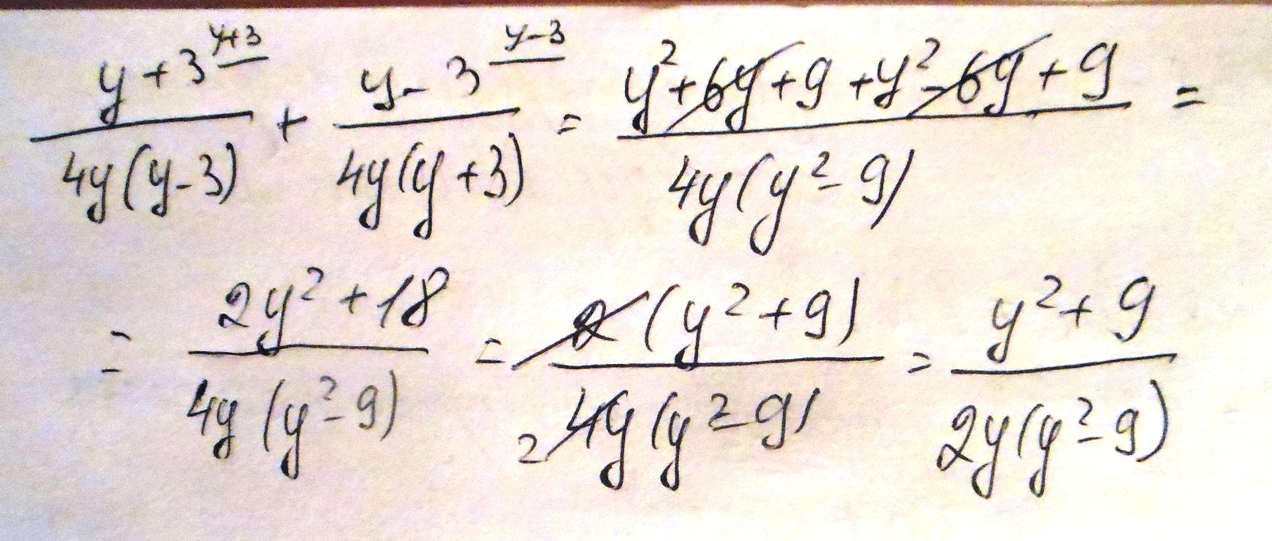 \frac{y+3^{\underline{y+3}}}{4y(y-3)} + \frac{y-3^{\underline{y-3}}}{4y(y+3)} = \frac{y^2+\cancel{6y}+9+y^2-\cancel{6y}+9}{4y(y^2-9)} =
= \frac{2y^2+18}{4y(y^2-9)} = \frac{\cancel{2}(y^2+9)}{_2\cancel{4}y(y^2-9)} = \frac{y^2+9}{2y(y^2-9)}